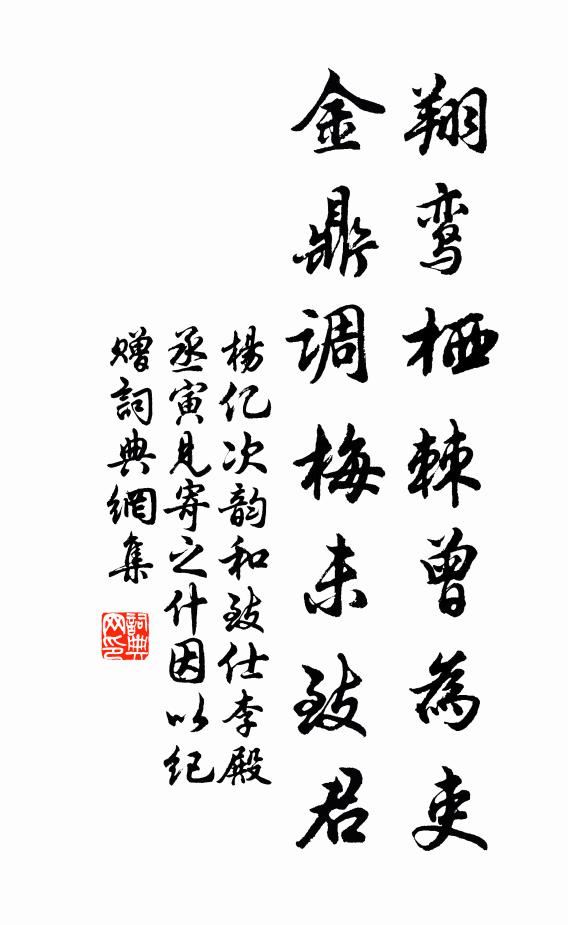 翔鸾栖棘曾為吏
金鼎调梅未致君
楊亿次韵和致仕李殿
丞寅見寄之什因以纪
赠詞典網集
詞典
网印